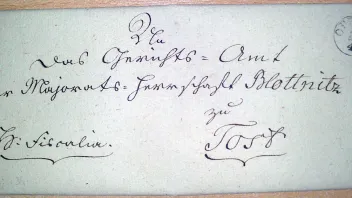 An
das Gerichts=Amt
r Majorats=Herrschaft Blottnitz
zu
Tost
H: Fiscalia.